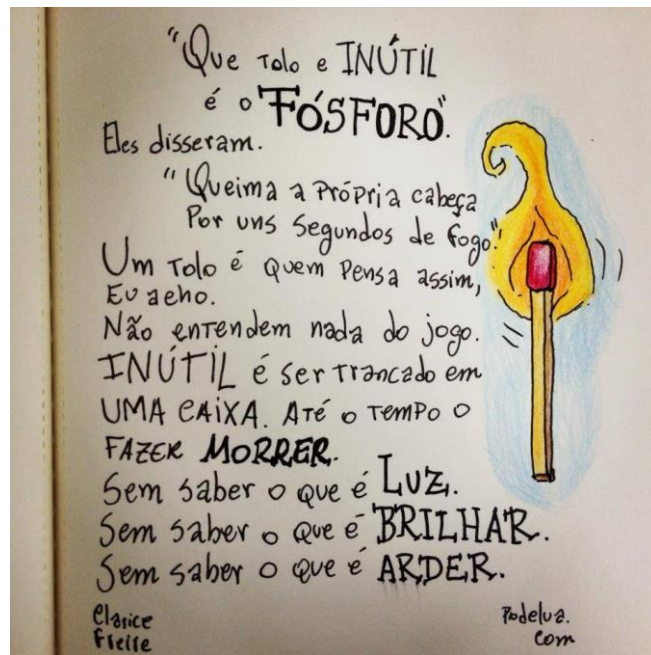 "Que Tolo e INÚTIL
é o FÓSFORO".
Eles disseram.
"Queima a Própria cabeça
Por uns segundos de fogo."
Um Tolo é quem Pensa assim,
Eu acho.
Não entendem nada do jogo.
INÚTIL é ser Trancado em
UMA CAIXA. Até o TEMPO O
FAZER MORRER.
Sem saber o que é LUZ.
Sem saber o que é BRILHAR.
Sem saber o que é ARDER.
Clarice
Freire
Podelua.
com